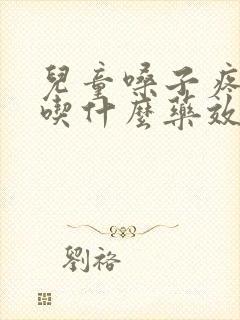 兒童嗓子疼
喫什麼藥效
劉裕